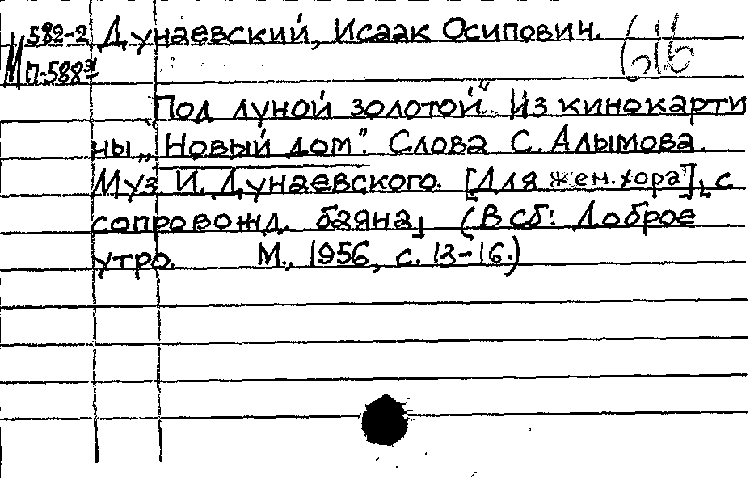 М 582-2 Дунаевский, Исаак Осипович. 616
П-588
"Под луной золотой". Из кинокарти
ны „Новый дом". Слова С. Алымова.
Муз И. Дунаевского. [Для жен. хора], с
сопровожд. баяна] (В сб: Доброе
утро. М., 1956, с. 13-16.)